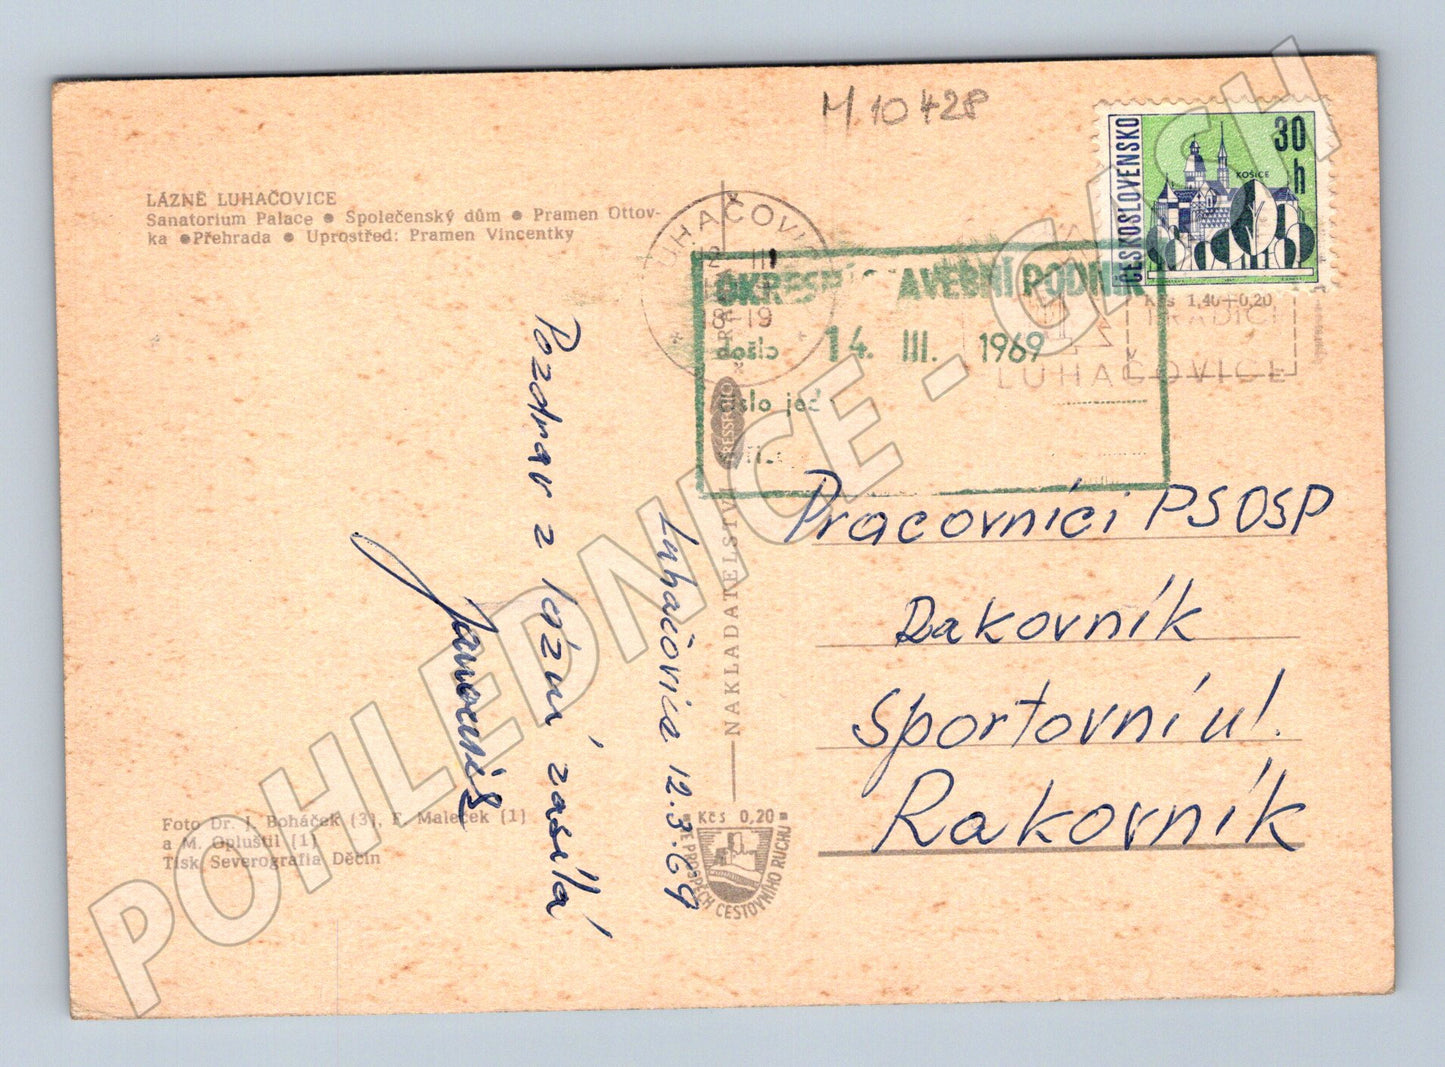 M 10428
LÁZNĚ LUHAČOVICE
Sanatorium Palace ● Společenský dům ● Pramen Ottov-
ka ● Přehrada ● Uprostřed: Pramen Vincentky
ČESKOSLOVENSKO
30 h
KOŠICE
LUHAČOVICE
12. III
18-19
OKRESNÍ STAVEBNÍ PODNIK
došlo 14. III. 1969
číslo jed
TRADICI
LUHAČOVICE
Kčs 1,40+0,20
PRESSFOTO
NAKLADATELSTVÍ
Pozdrav z lázní zasílá
Luhačovice 12.3.69
Pracovníci PSOSP
Rakovník
Sportovní ul.
Rakovník
Foto Dr. J. Boháček (3), F. Maleček (1)
a M. Opluštil (1)
Tisk Severografia Děčín
Kčs 0,20
VE PROSPĚCH CESTOVNÍHO RUCHU
POHLEDNICE - GASH